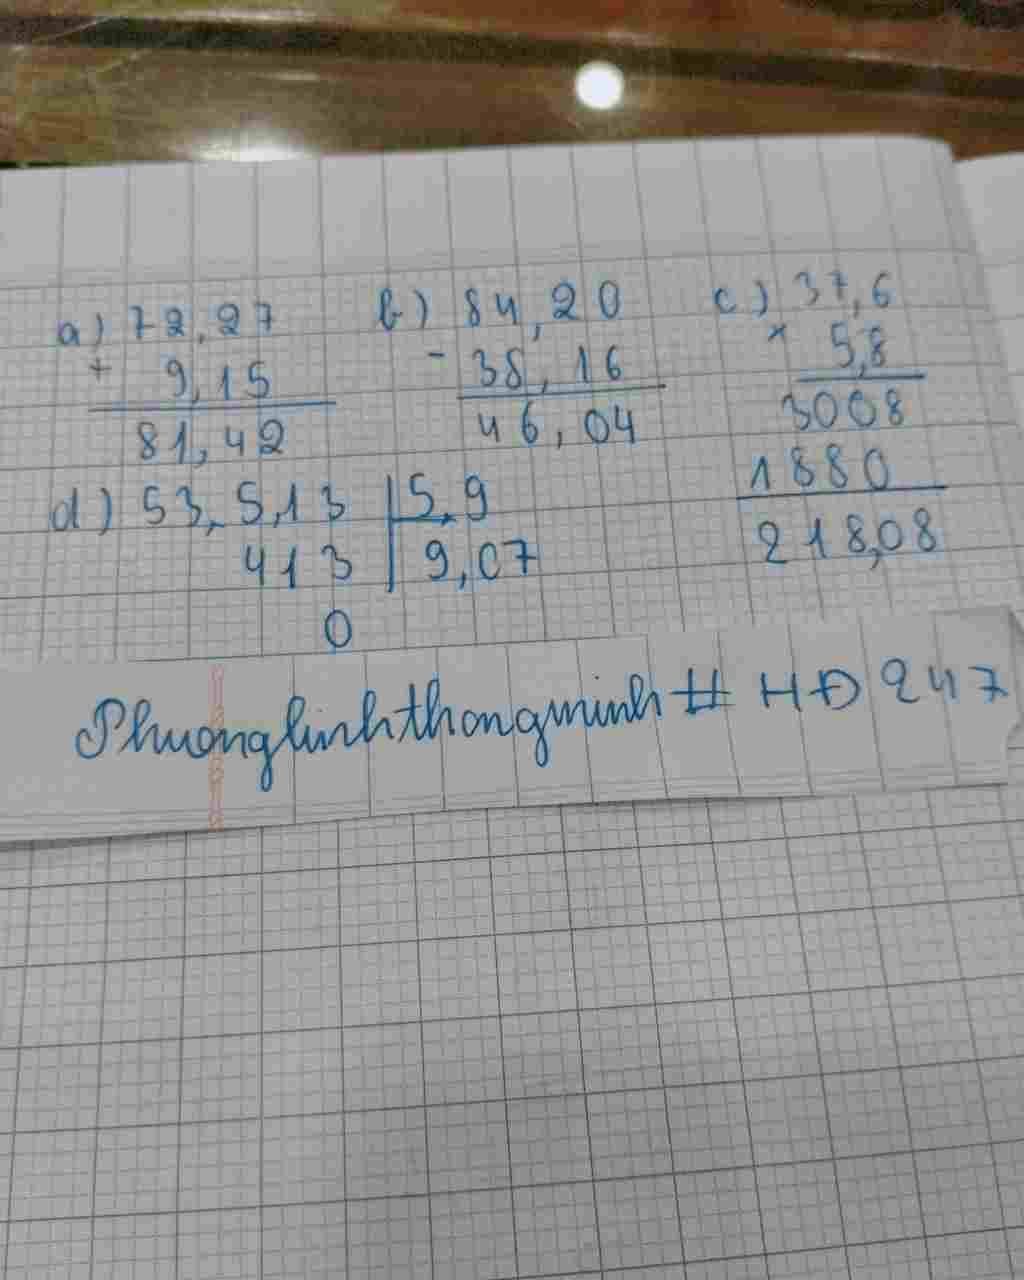 a) 72,27
+ 9,15
81,42
b) 84,20
- 38,16
46,04
c) 37,6
× 5,8
3008
1880
218,08
d) 53,5,13 | 5,9
413 | 9,07
0
Phuonglinhthongminh # HĐ 247